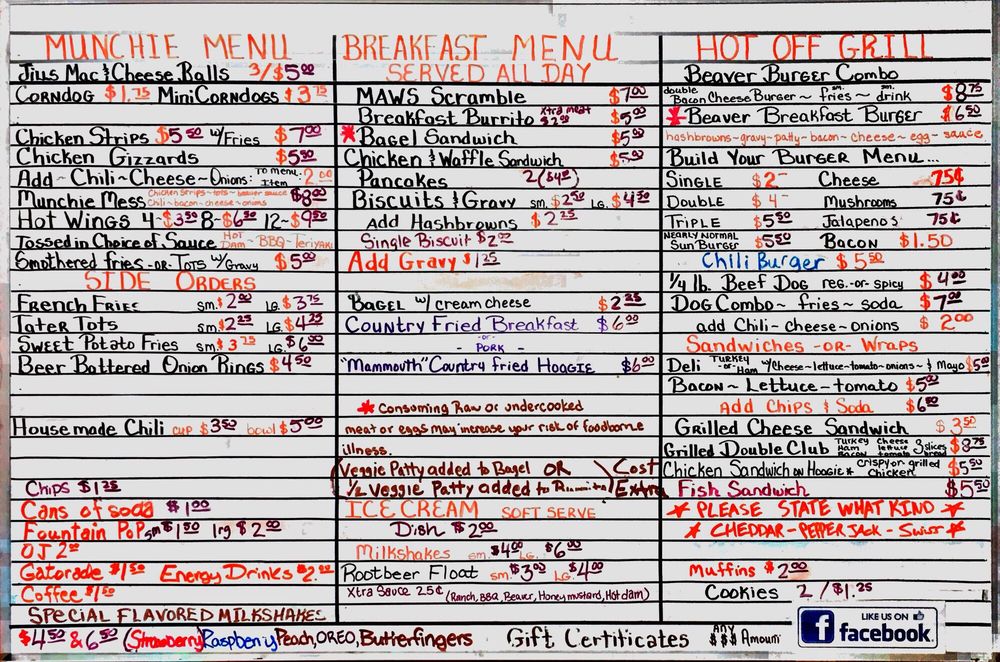 MUNCHIE MENU
Jius Mac & Cheese Balls 3/$5.00
CORNDOG $1.75 Mini CORNDOGS $3.75
Chicken Strips $5.50 w/Fries $7.00
Chicken Gizzards $5.50
Add ~ Chili ~ Cheese ~ Onions: To menu Item 2.00
Munchie Mess Chicken strips ~ tots ~ beaver sauce chili ~ bacon ~ cheese ~ onions $8.00
Hot Wings 4-$3.50 8-$6.50 12-$9.50
Tossed in Choice of Sauce Hot DAM - BBQ - Teriyaki
Smothered fries -OR- TOTS w/Gravy $5.00
SIDE ORDERS
FRENCH FRIES sm. $2.00 LG. $3.75
Tater Tots sm. $2.25 LG. $4.25
SWEET Potato Fries sm. $3.75 LG. $6.00
Beer Battered Onion Rings $4.50
Housemade Chili cup $3.50 bowl $5.00
Chips $1.25
Cans of soda $1.00
Fountain PoP sm $1.50 lrg $2.00
OJ 2.00
Gatorade $1.50 Energy Drinks $2.00
Coffee $1.50
SPECIAL FLAVORED MILKSHAKES
$4.50 & 6.50 (Strawberry, Raspberry, Peach, OREO, Butterfingers
BREAKFAST MENU
SERVED ALL DAY
MAWS Scramble $7.00
Breakfast Burrito xtra meat $2.00 $5.00
* Bagel Sandwich $5.00
Chicken & Waffle Sandwich $5.00
Pancakes 2($4.00)
Biscuits & Gravy sm. $2.50 LG. $4.50
Add Hashbrowns $2.25
Single Biscuit $2.00
Add Gravy $1.25
BAGEL w/ cream cheese $2.25
Country Fried Breakfast $6.00
-or-
- PORK -
"Mammouth" Country fried HOAGIE $6.00
* Consoming Raw or undercooked
meat or eggs may increase your risk of foodborne
illness.
(Veggie Patty added to Bagel OR \ Cost
1/2 Veggie Patty added to / Extra
ICE CREAM SOFT SERVE
Dish $2.00
Milkshakes sm. $4.00 LG. $6.00
Rootbeer Float sm. $3.00 LG. $4.00
Xtra Sauce 25¢ (Ranch, BBQ, Beaver, Honey mustard, Hot dam)
Gift Certificates ANY $$$ Amount
HOT OFF GRILL
Beaver Burger Combo
double Bacon Cheese Burger ~ sm. fries ~ sm. drink $8.75
* Beaver Breakfast Burger $6.50
hashbrowns ~ gravy ~ patty ~ bacon ~ cheese ~ egg ~ sauce
Build Your BURGER MENU...
SINGLE $2- Cheese 75¢
DOUBLE $4- Mushrooms 75¢
TRIPLE $5.50 Jalapenos 75¢
NEARLY NORMAL Sun Burger $5.50 BACON $1.50
Chili Burger $5.50
1/4 lb. Beef Dog REG.-or-spicy $4.00
DOG COMBO ~ fries ~ soda $7.00
add Chili ~ cheese ~ onions $2.00
Sandwiches -OR- WRAPS
Deli TURKEY -or- Ham w/Cheese ~ lettuce ~ tomato ~ onions ~ & Mayo $5.00
BACON ~ Lettuce - tomato $5.00
Add Chips & Soda $6.50
Grilled Cheese Sandwich $3.50
Grilled Double Club Turkey Ham Bacon Cheese lettuce tomato 3 slices bread $8.75
Chicken Sandwich on Hoagie * Crispy or grilled Chicken $5.50
Fish Sandwich $5.50
* PLEASE STATE WHAT KIND *
* CHEDDAR - PEPPER JACK - SWISS *
Muffins $2.00
Cookies 2/$1.25
LIKE US ON
facebook